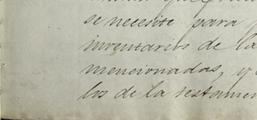 se necesite para
inventarios de la
mencionadas, y
los de la testamen